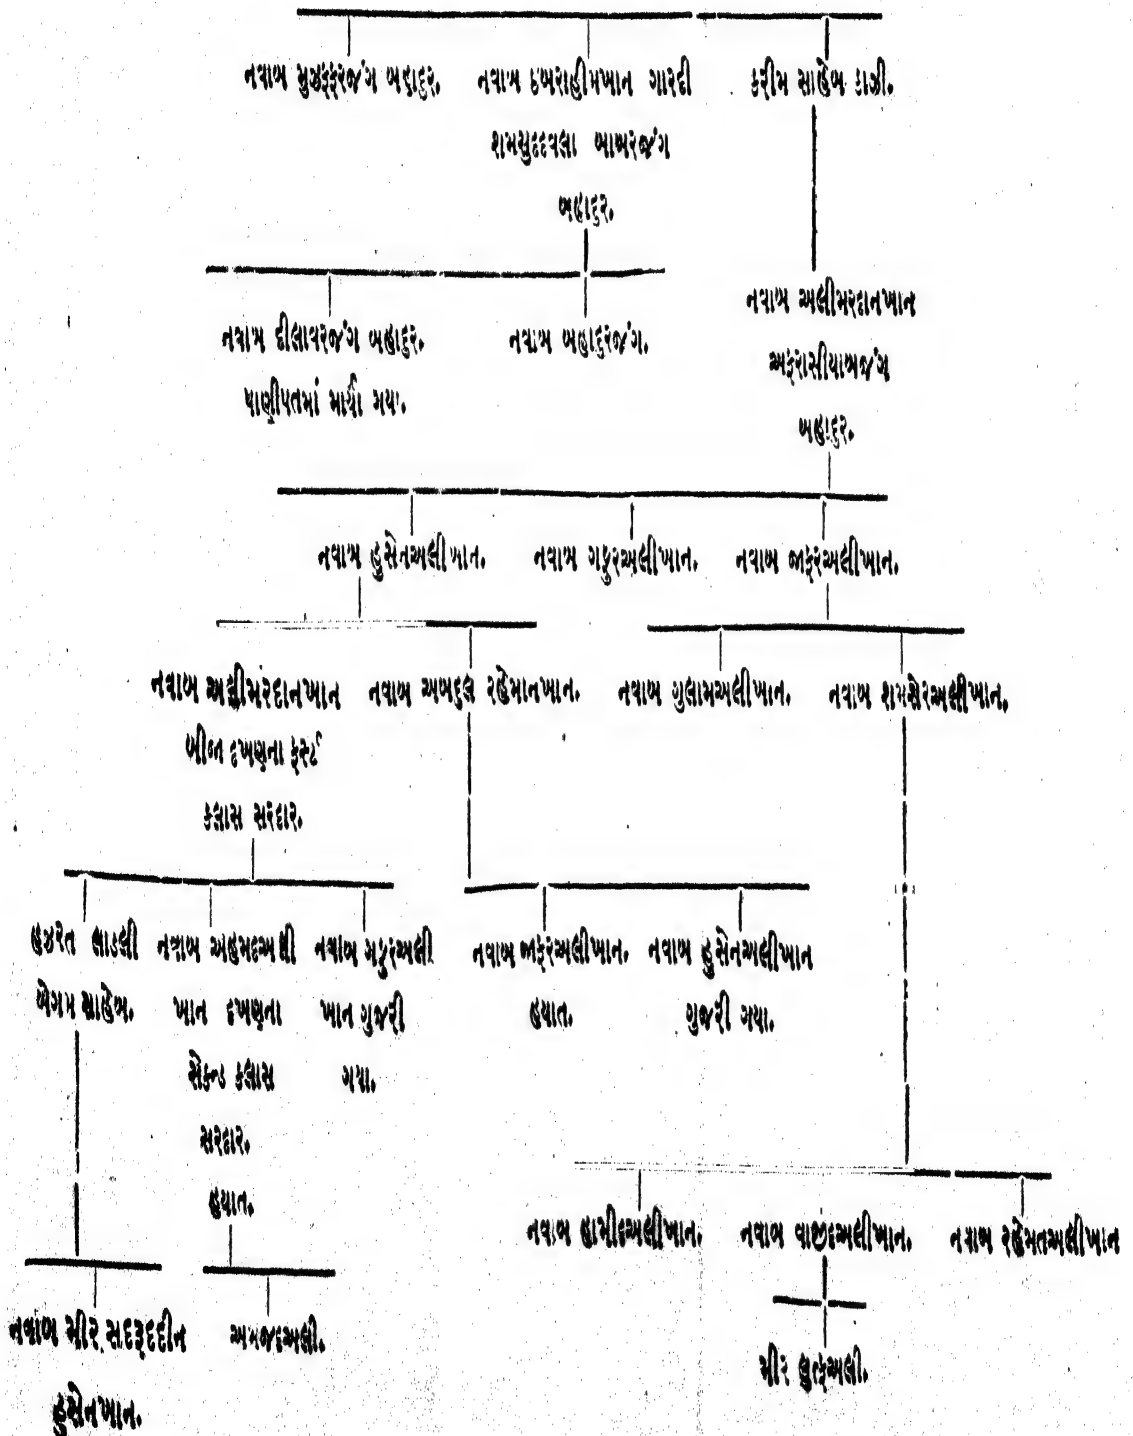 નવાબ મુઝફ્ફરજંગ બહાદુર.
નવાબ ઇબરાહીમખાન ગારદી
શમસુદદવલા બાબરજંગ
બહાદુર.
કરીમ સાહેબ કાઝી.
નવાબ દીલાવરજંગ બહાદુર.
પાણીપતમાં માર્યા ગયા.
નવાબ બહાદુરજંગ.
નવાબ અલીમરદાનખાન
અફરાસીયાબજંગ
બહાદુર.
નવાબ હુસેનઅલીખાન.
નવાબ ગફુરઅલીખાન.
નવાબ જાફરઅલીખાન.
નવાબ અલીમરદાનખાન
બીજા દખણના ફર્સ્ટ
કલાસ સરદાર.
નવાબ અબદુલ રહેમાનખાન.
નવાબ ગુલામઅલીખાન.
નવાબ શમશેરઅલીખાન.
હજરત લાડલી
બેગમ સાહેબ.
નવાબ અહમદઅલી
ખાન દખણના
સેકન્ડ કલાસ
સરદાર.
હયાત.
નવાબ ગફુરઅલી
ખાન ગુજરી
ગયા.
નવાબ જાફરઅલીખાન.
હયાત.
નવાબ હુસેનઅલીખાન
ગુજરી ગયા.
નવાબ હામીદઅલીખાન.
નવાબ વાજીદઅલીખાન.
નવાબ રહેમતઅલીખાન
નવાબ મીર સદરૂદદીન
હુસેનખાન.
અમજદઅલી.
મીર લુત્ફઅલી.